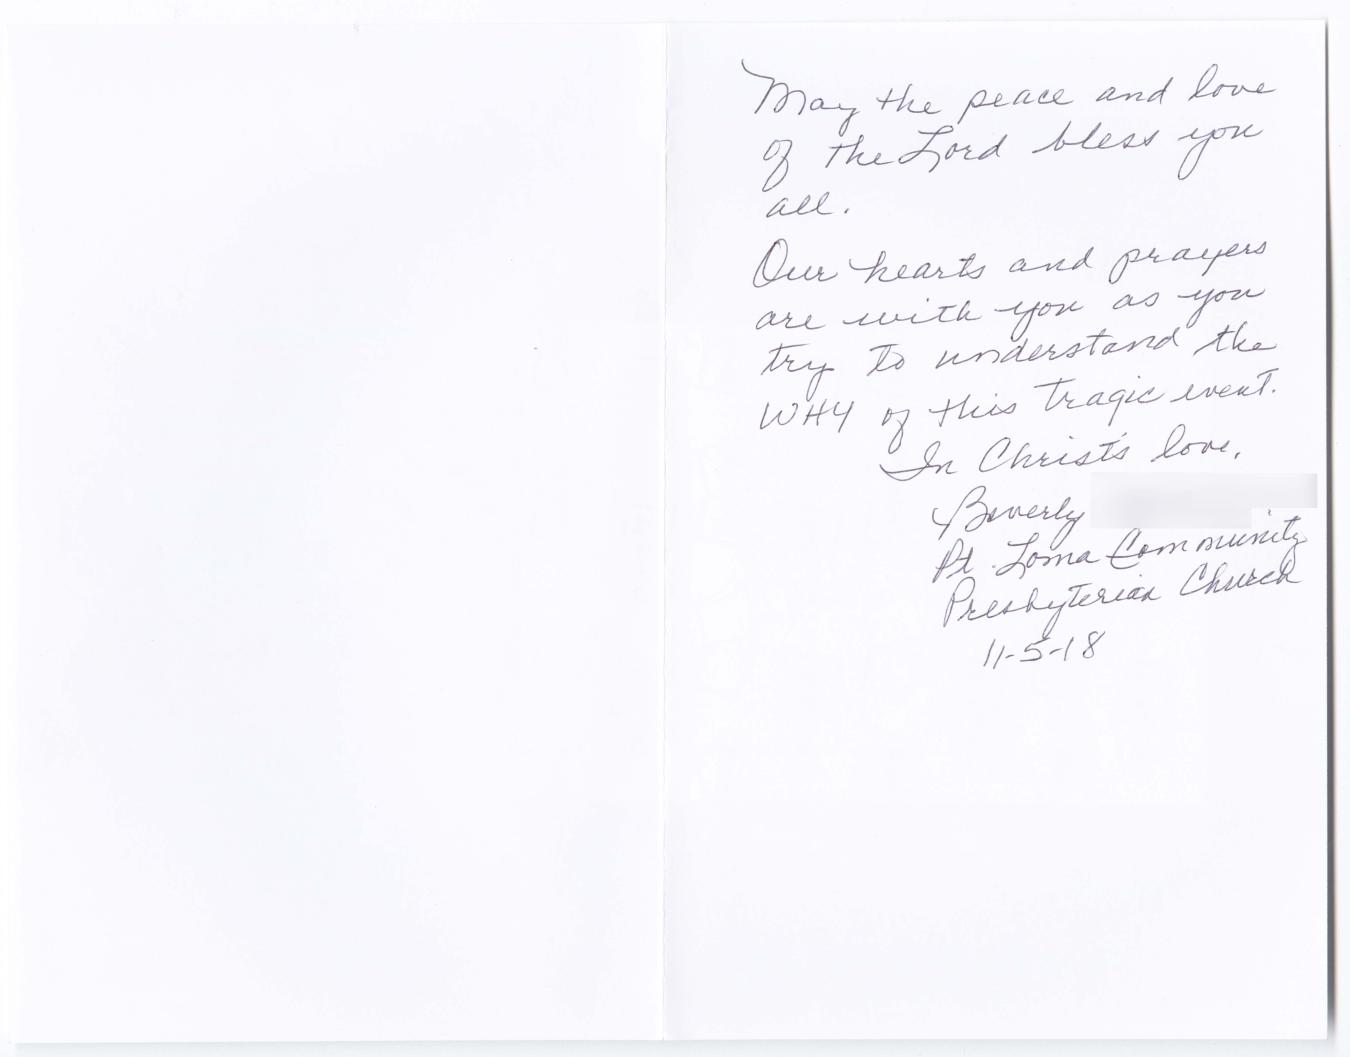 May the peace and love
of the Lord bless you
all.
Our hearts and prayers
are with you as you
try to understand the
WHY of this tragic event.
In Christ's love,
Beverly
Pt. Loma Community
Presbyterian Church
11-5-18